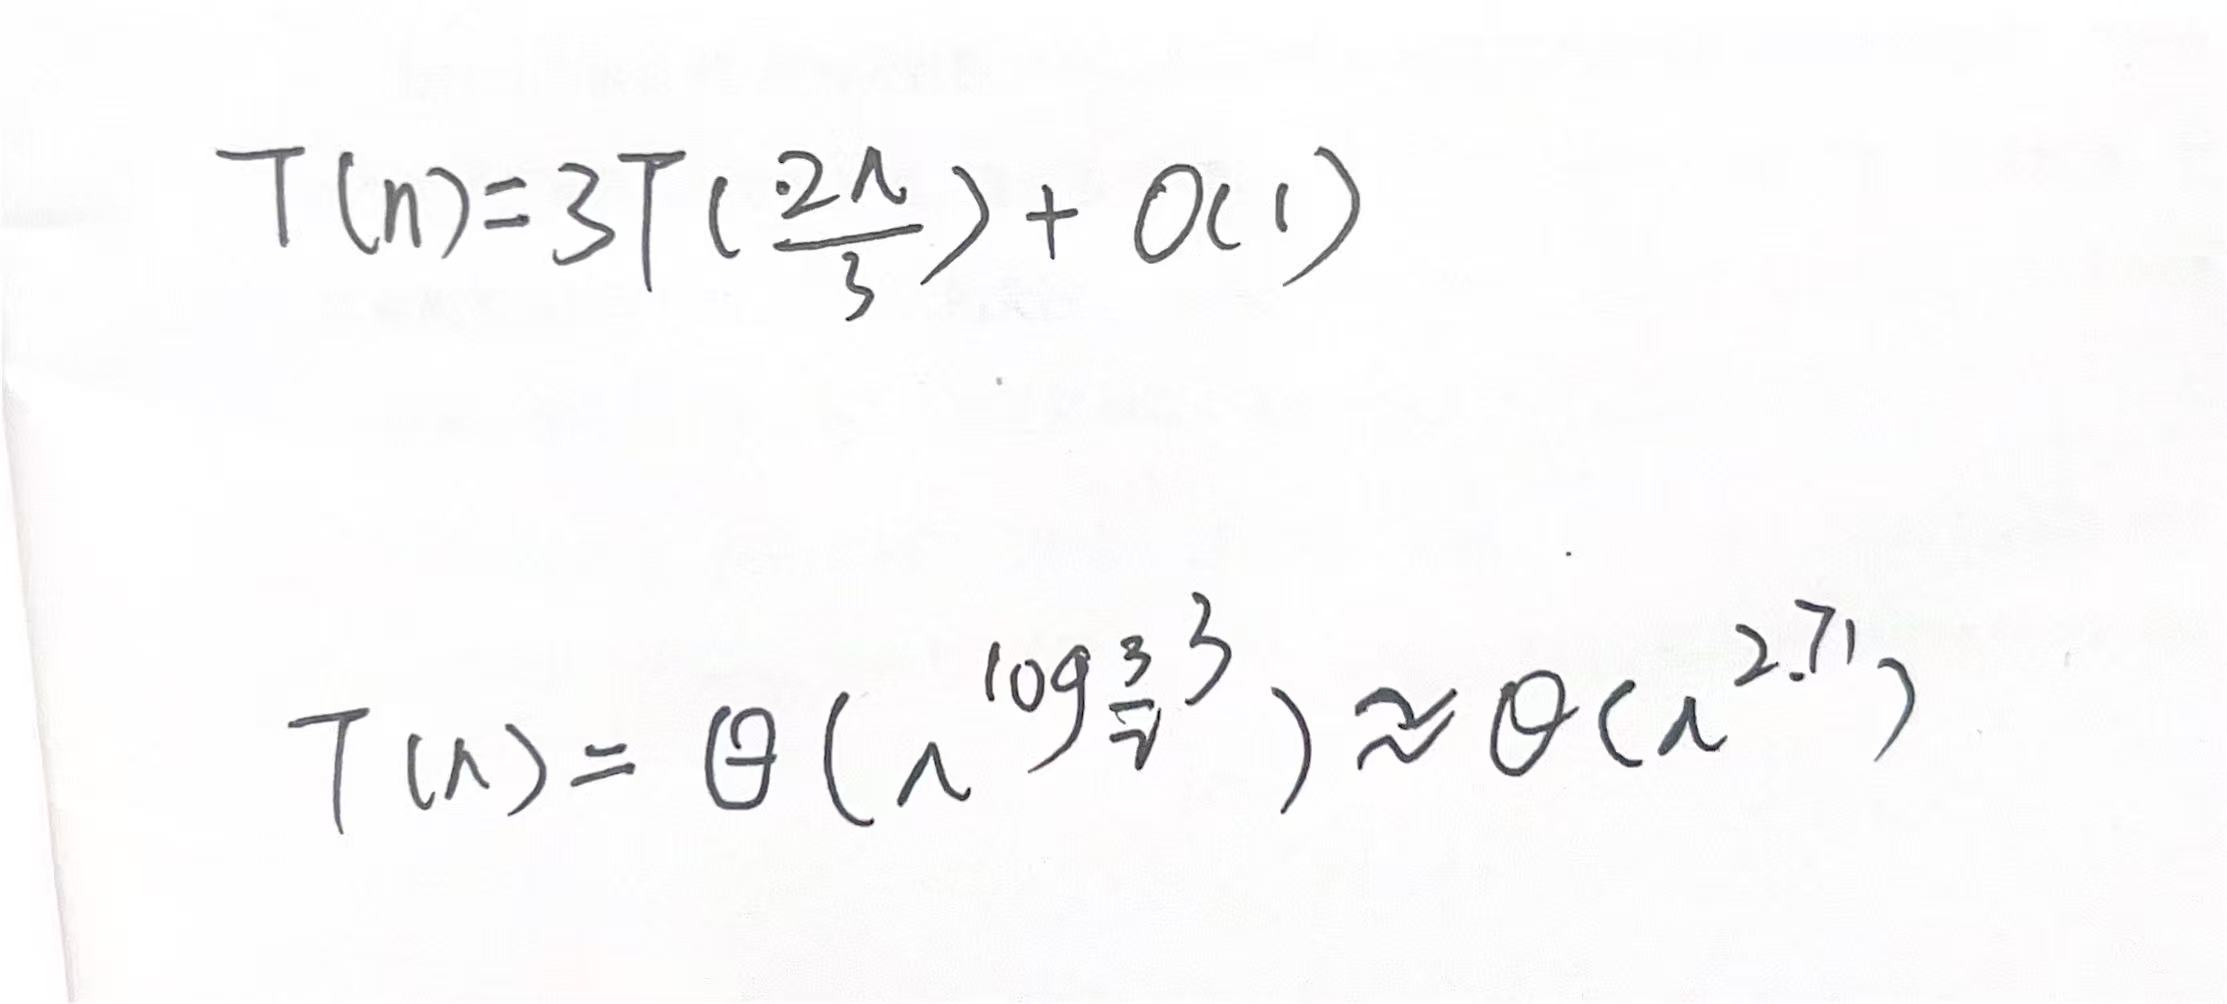 T(n)=3T(2n/3)+O(1)
T(n)=Θ(n^{log_{3/2} 3})≈Θ(n^{2.71})